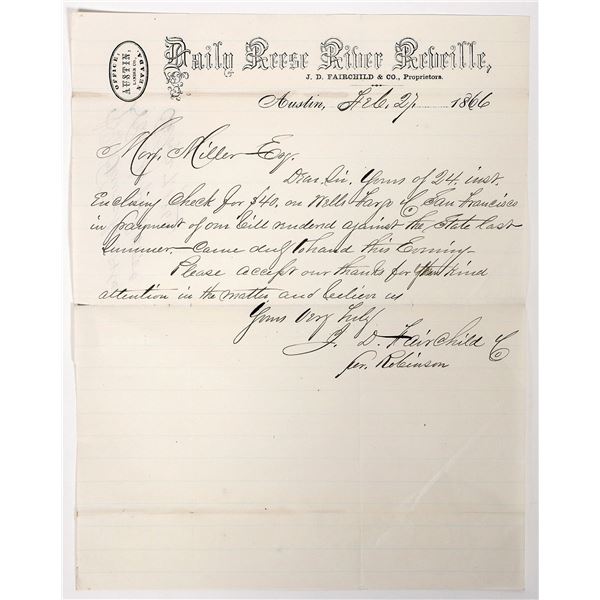 OFFICE,
AUSTIN,
LANDER CO.,
NEVADA.
Daily Reese River Reveille,
J. D. FAIRCHILD & CO., Proprietors.
Austin, Feb. 27 1866
Miller Esq.
Dear Sir, Yours of 24. inst.
Enclosing Check for $40. on Wells Fargo & Co San Francisco
in payment of our bill rendered against the State last
Summer. Came duly to hand this Evening.
Please accept our thanks for your kind
attention in the matter, and believe us
Yours Very Truly
J. D. Fairchild & Co
per. Robinson